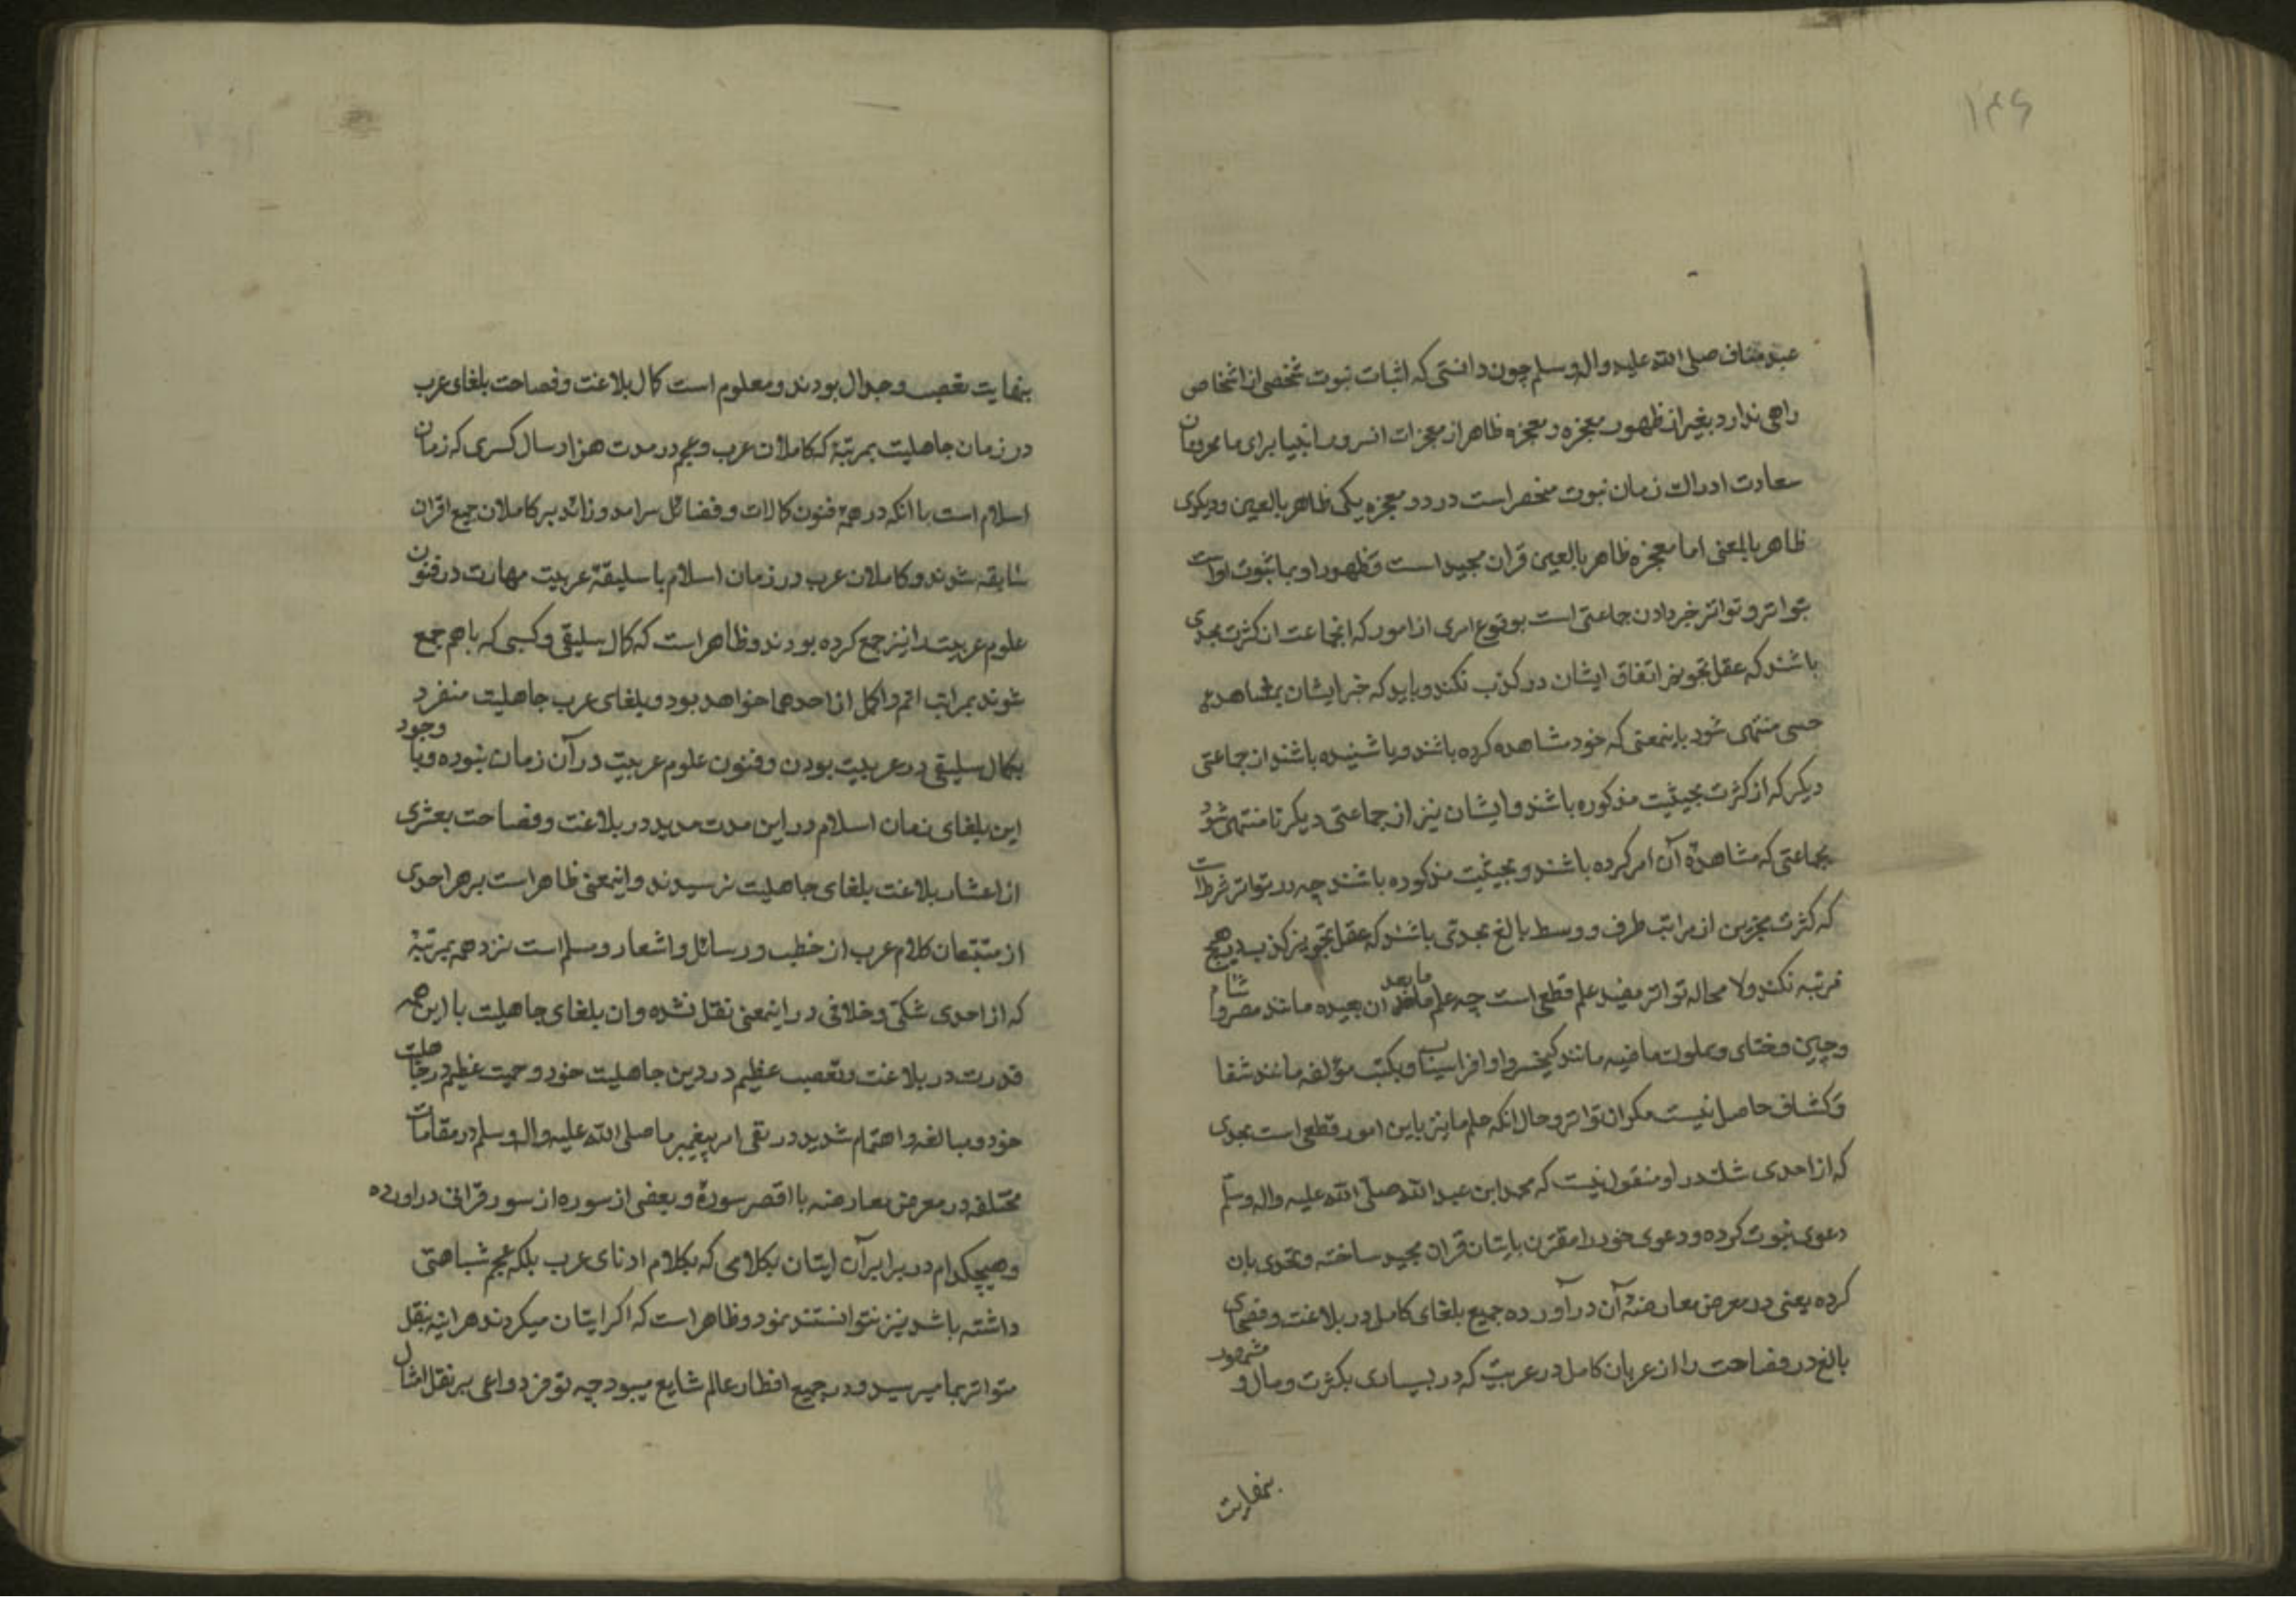 ۱۴۶
عبد مناف صلی الله علیه واله وسلم چون دانستی که اثبات نبوت شخصی از اشخاص
راهی ندارد بغیر از ظهور معجزه و معجزه ظاهر از معجزات انسرور انبیا برای ما محرومان
سعادت ادراك زمان نبوت منحصر است در دو معجزه یکی ظاهر بالعین ودیکری
ظاهر بالمعنی اما معجزه ظاهر بالعین قران مجید است وظهور او بما ثبوت اوست
بتواتر و تواتر خبر دادن جماعتی است بوقوع امری از امور که انجماعت از کثرت بحدی
باشند که عقل تجویز اتفاق ایشان در کذب نکند و باید که خبر ایشان بمشاهده
حسی منتهی شود باینمعنی که خود مشاهده کرده باشند ویا شنیده باشند از جماعتی
دیکر که از کثرت بحیثیت مذکوره باشند وایشان نیز از جماعتی دیکر تا منتهی شود
بجماعتی که مشاهدهٔ آن امر کرده باشند و بحیثیت مذکوره باشند چه در تواتر شرطست
که کثرت مخبرین از مراتب طرف ووسط بالغ بحدی باشد که عقل تجویز کذب در هیچ
مرتبه نکند ولا محاله تواتر مفید علم قطعی است چه علم ما ببلدان بعیده مانند مصر و شام
وچین وختای و بملوك ماضیه مانند کیخسرو و افراسیاب وبکتب مؤلفه مانند شفا
وکشاف حاصل نیست مکر از تواتر و حال انکه علم ما نیز باین امور قطعی است بحدی
که از احدی شك در او منقول نیست که محمد ابن عبد الله صلی الله علیه واله وسلم
دعوی نبوت کرده و دعوی خود را مقترن باتیان قران مجید ساخته وتحدی بان
کرده یعنی در معرض معارضهٔ آن در آورده جمیع بلغای کامل در بلاغت و فصحای
بالغ در فصاحت را از عربان کامل در عربیت که در بسیاری بکثرت ومال و مشهور
بنهایت
بنهایت تعصب وجدال بودند و معلوم است کمال بلاغت وفصاحت بلغای عرب
در زمان جاهلیت بمرتبهٔ که کاملان عرب وعجم در مدت هزار سال کسری که زمان
اسلام است با انکه در همهٔ فنون کمالات و فضائل سرامد و زائد بر کاملان جمیع اقران
سابقه شوند و کاملان عرب در زمان اسلام با سلیقهٔ عربیت مهارت در فنون
علوم عربیت را نیز جمع کرده بودند و ظاهر است که کمال سلیقی وکسبی که باهم جمع
شوند بمراتب اتم و اکمل از احدهما خواهد بود وبلغای عرب جاهلیت منفرد
بکمال سلیقی در عربیت بودن و فنون علوم عربیت در آن زمان نبوده وبا وجود
این بلغای زمان اسلام در این مدت مدید در بلاغت وفصاحت بعشری
از اعشار بلاغت بلغای جاهلیت نرسیدند واینمعنی ظاهر است بر هر احدی
از متتبعان کلام عرب از خطب و رسائل و اشعار و مسلم است نزد همه بمرتبهٔ
که از احدی شکی و خلافی در اینمعنی نقل نشده وان بلغای جاهلیت با این همه
قدرت در بلاغت وتعصب عظیم در دین جاهلیت خود و حمیت عظیم در جاهلیت
خود ومبالغه واهتمام شدید در نفی امر پیغمبر ما صلی الله علیه واله وسلم در مقامات
مختلفه در معرض معارضه با اقصر سورهٔ و بعضی از سوره از سور قرانی در اورده
وهیچکدام در برابر آن اتیان بکلامی که بکلام ادنای عرب بلکه عجم شباهتی
داشته باشد نیز نتوانستند نمود وظاهر است که اکر اتیان میکردند هراینه بنقل
متواتر بما میرسید ودر جمیع اقطار عالم شایع میبود چه توفر دواعی بر نقل امثال